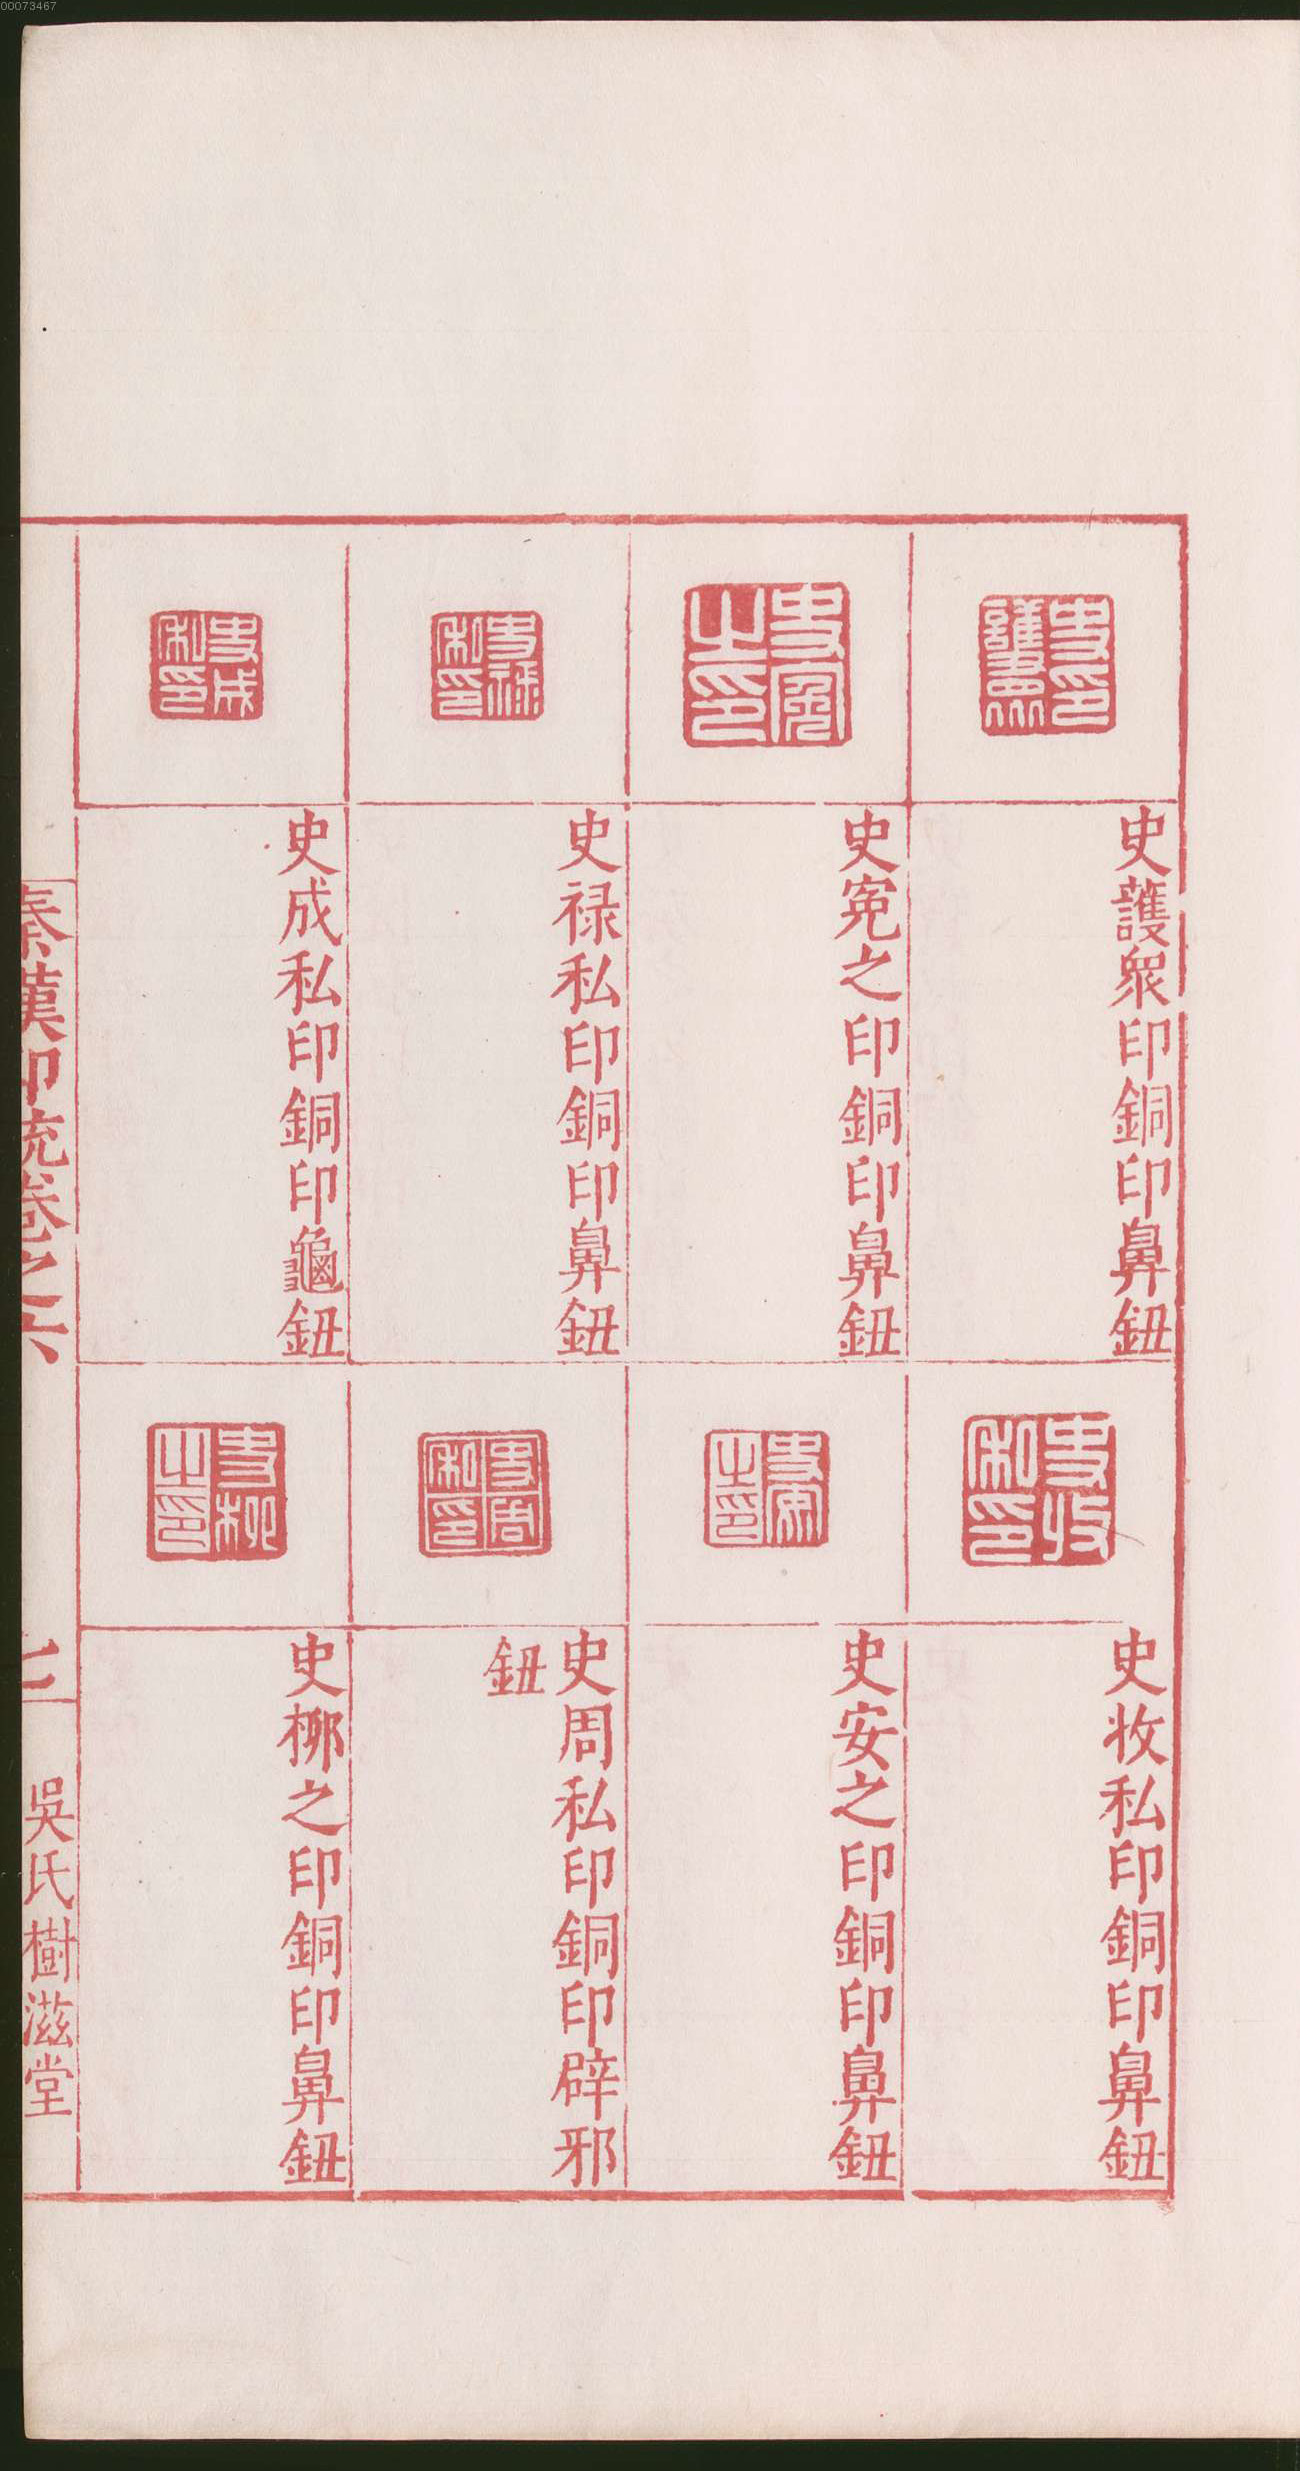 00073467
史護衆印銅印鼻鈕
史寃之印銅印鼻鈕
史禄私印銅印鼻鈕
史成私印銅印龜鈕
史牧私印銅印鼻鈕
史安之印銅印鼻鈕
史周私印銅印辟邪
鈕
史柳之印銅印鼻鈕
秦漢印統卷之六
七
吳氏樹滋堂